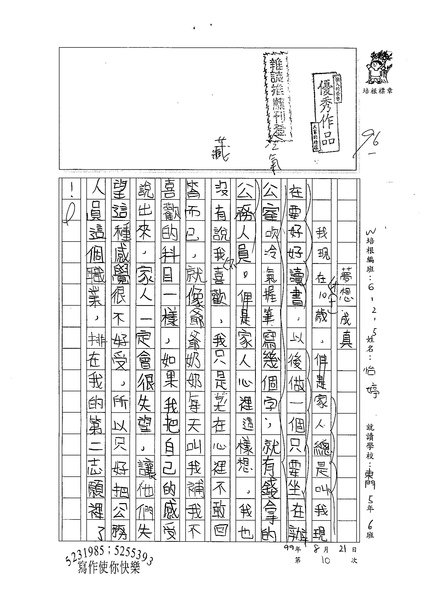 培根標章
優秀作品
雜誌推薦刊登
96
冷氣
藏
W培根編班:6,2,5
姓名:怡婷
就讀學校:東門5年6班
夢想成真
我現在10歲,但是家人總是叫我現
在要好好讀書,以後做一個只要坐在辦
公室吹冷氣握筆寫幾個字,就有錢拿的
公務人員。但是家人心裡這樣想,我也
沒有說我喜歡,我只是
在心裡不敢回
答而已,就像爺爺奶奶每天叫我補我不
喜歡的科目一樣,如果我把自己的感受
說出來,家人一定會很失望,讓他們失
望這種感覺很不好受,所以只好把公務
人員這個職業,排在我的第二志願裡了
!
99年8月21日
第10次
5231985;5255393
寫作使你快樂